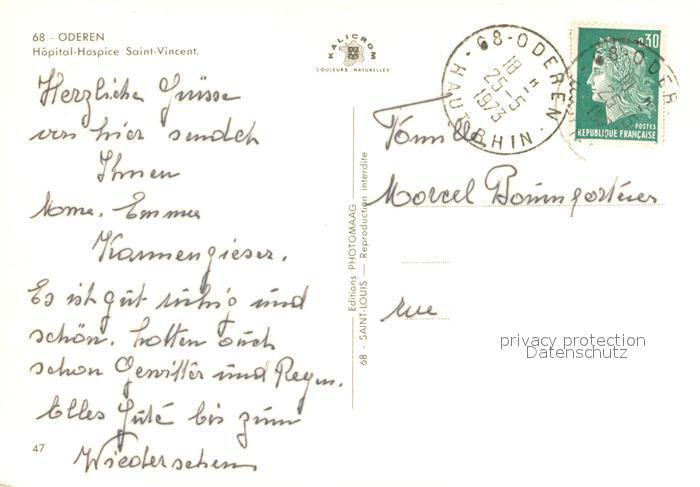 68 - ODEREN
Hôpital-Hospice Saint-Vincent.
KALICROM
COULEURS NATURELLES
68-ODEREN
18 H
25-5
1973
HAUT-RHIN
68-ODEREN
0,30
POSTES
REPUBLIQUE FRANÇAISE
Herzliche Grüsse
von hier sendet
Ihnen
Mme. Emma
Kannengieser.
Es ist gut ruhig und
schön. hatten auch
schon Gewitter und Regen.
Alles Gute bis zum
Wiedersehen
47
Editions PHOTOMAAG
68 - SAINT-LOUIS — Reproduction interdite
Famille
Marcel Baumgartner
rue
privacy protection
Datenschutz